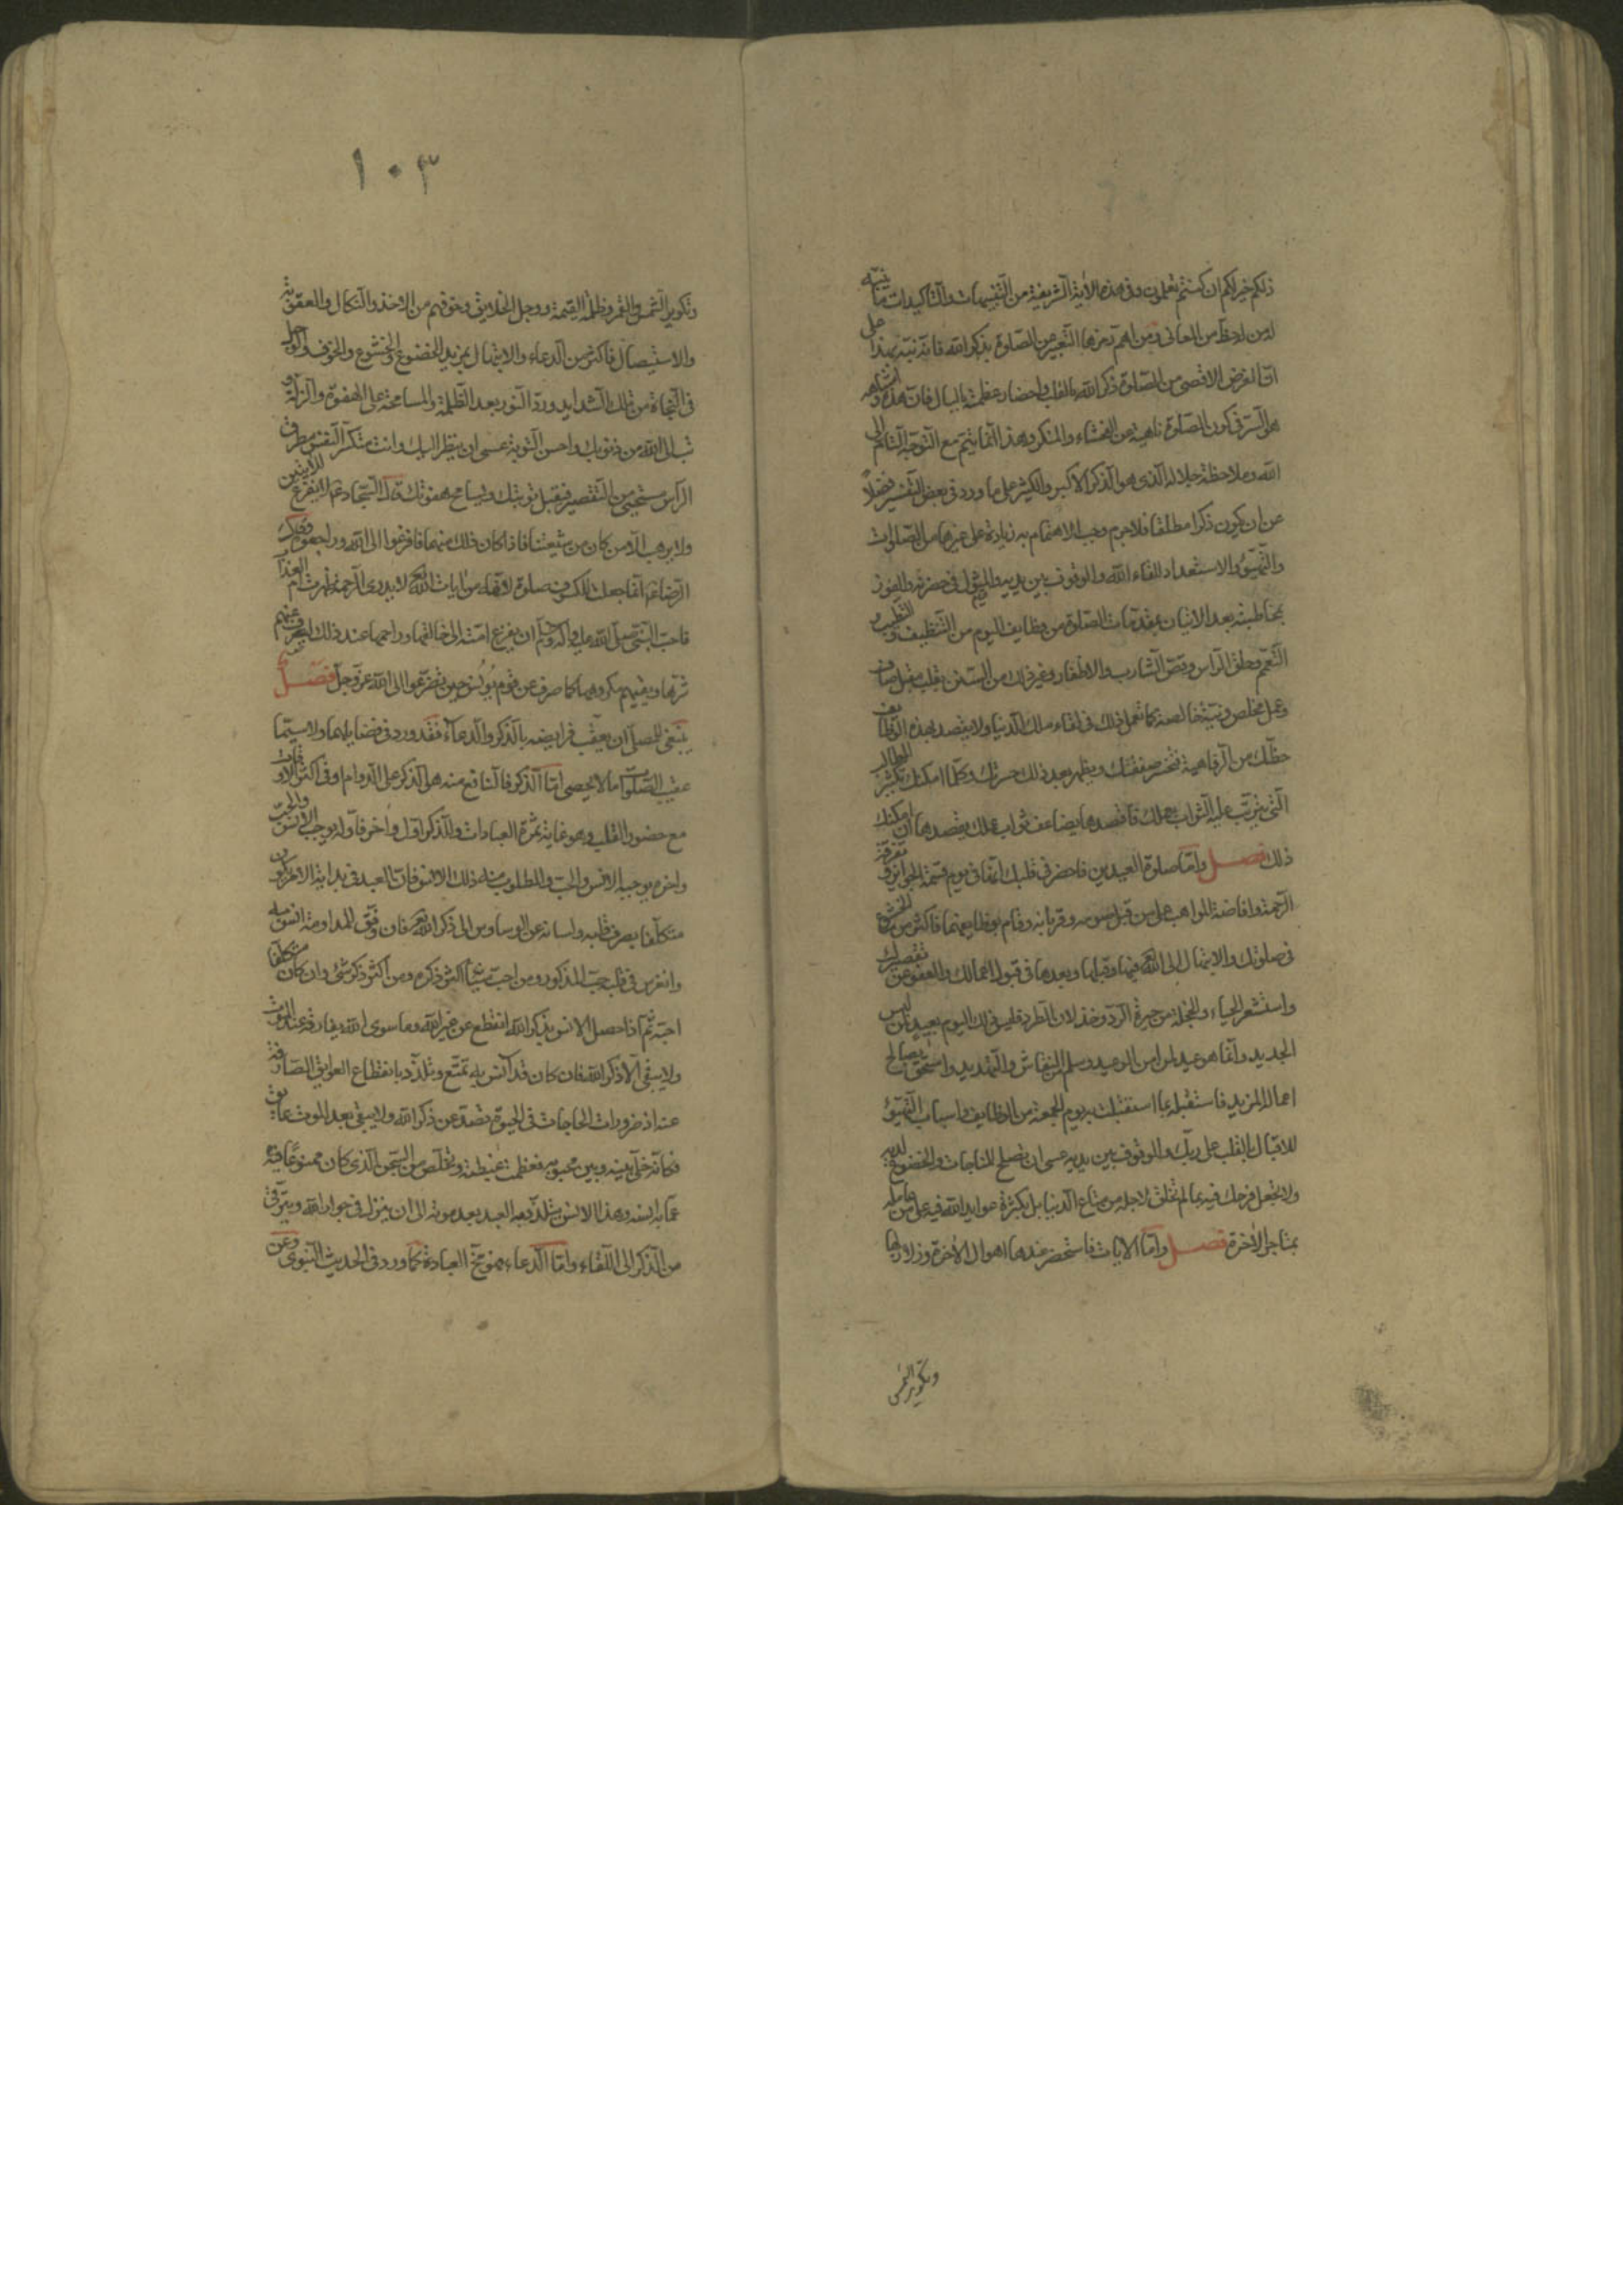 ذلكم خير لكم ان كنتم تعلمون وفي هذه الآية الشريفة من التنبيهات والتأكيدات ما ينبّه
له من لحظ من المعاني ومن اهم رمزها التعبير عن الصلوة بذكر الله فانه نبّه بهذا على
انّ الغرض الاقصى من الصلوة ذكر الله بالقلب واحضار عظمته بالبال فان هذا واشباهه
هو السرّ في كون الصلوة ناهية عن الفحشاء والمنكر وهذا انما يتم مع التوجه التام الى
الله وملاحظة جلاله الذي هو الذكر الاكبر والكثير على ما ورد في بعض التفسير فضلاً
عن ان يكون ذكرا مطلقا فلا جرم وجب الاهتمام به زيادة على غيرها من الصلوات
والتهيّؤ والاستعداد للقاء الله والوقوف بين يديه والمثول في حضرته والفوز
بمخاطبته بعد الاتيان بمقدمات الصلوة من وظايف اليوم من التنظيف والتطيب و
التعمّم وحلق الرأس وقصّ الشارب والاظفار وغير ذلك من السنن بقلب مقبل صاف
وعمل مخلص ونيّة خالصة كما تعمل ذلك في لقاء ملك الدنيا ولا يقصد بهذه الوظايف
حظّك من الرفاهية فتخسر صفقتك ويظهر بعد ذلك حسرتك وكلّما امكنك تكثير المطالب
التي يترتب عليها الثواب بعملك فاقصدها يضاعف ثواب عملك بقصدها ان امكنك
ذلك فصل وامّا صلوة العيدين فاحضر في قلبك انها في يوم قسمة الجوايز وتفرقة
الرحمة وافاضة المواهب على من قبل صومه وقربانه وقام بوظايفهما فاكثر من الخشوع
في صلوتك والابتهال الى الله فيها وقبلها وبعدها في قبول اعمالك والعفو عن تقصيرك
واستشعر الحياء والخجلة من حيرة الردّ وخذلان الطرد فليس ذلك اليوم بعيد من لبس
الجديد وانما هو عيد لمن امن الوعيد وسلم من النقاش والتهديد واستحق بصالح
اعماله المزيد فاستقبله بما استقبلت به يوم الجمعة من الوظايف واسباب التهيّؤ
للاقبال بالقلب على ربّك والوقوف بين يديه عسى ان تصلح للمناجات والخضوع لديه
ولا تجعل فرحك فيه بما لم تخلق لاجله من متاع الدنيا بل بكثرة عوايد الله فيه على من عامله
بمتاجر الآخرة فصل وامّا الآيات فاستحضر عندها اهوال الآخرة وزلازلها
وتكوير الشمس
١٠٣
وتكوير الشمس والقمر وظلمة القيمة ووجل الخلايق وخوفهم من الاخذ والنكال والعقوبة
والاستيصال فاكثر من الدعاء والابتهال بمزيد الخضوع والخشوع والخوف والوجل
في النجاة من تلك الشدايد وردّ النور بعد الظلمة والمسامحة على الهفوة والزلّة و
تب الى الله من ذنوبك واحسن التوبة عسى ان ينظر اليك وانت منكسر النفس مطرق
الراس مستحيي من التقصير فيقبل توبتك ويسامح هفوتك قال السجاد ع لا يفزع للآيتين
ولا يرهب الا من كان من شيعتنا فاذا كان ذلك منهما فافزعوا الى الله وراجعوه وعن
الرضا ع انما جعلت للكسوف صلوة لانه من آيات الله لا يدرى الرحمة ظهرت ام العذاب
فاحب النبي صلى الله عليه وآله وسلم ان يفزع امته الى خالقها وراحمها عند ذلك ليصرف عنهم
شرّها ويقيهم مكروهها كما صرف عن قوم يونس حين تضرعوا الى الله عز وجل فصل
ينبغي للمصلي ان يعقب فرايضه بالذكر والدعاء فقد ورد في فضايلهما ولا سيما
عقيب الصلوات ما لا يحصى امّا الذكر فالنافع منه هو الذكر على الدوام او في اكثر الاوقات
مع حضور القلب وهو غاية ثمرة العبادات وللذكر اول وآخر فاوله يوجب الانس والحبّ
وآخره يوجبه الانس والحبّ والمطلوب منه ذلك الانس فان العبد في بداية الامر يكون
متكلّفا بصرف قلبه ولسانه عن الوساوس الى ذكر الله فان وفّق للمداومة انس به
وانغرس في قلبه حبّ المذكور ومن احبّ شيئا اكثر ذكره ومن اكثر ذكر شئ وان كان متكلّفا
احبّه ثم اذا حصل الانس بذكر الله انقطع عن غير الله وما سوى الله يفارقه عند الموت
ولا يبقى الا ذكر الله فان كان قد انس به تمتّع وتلذّذ بانقطاع العوايق الصارفة
عنه اذ ضرورات الحاجات في الحيوة تصدّ عن ذكر الله ولا يبقى بعد الموت عايق
فكانه خلّي بينه وبين محبوبه فعظمت غبطته وتخلّص من السجن الذي كان ممنوعا فيه
عمّا به انسه وهذا الانس يتلذّذ به العبد بعد موته الى ان ينزل في جوار الله ويترقّى
من الذكر الى اللقاء وامّا الدعاء فهو مخّ العبادة كما ورد في الحديث النبوي وعن